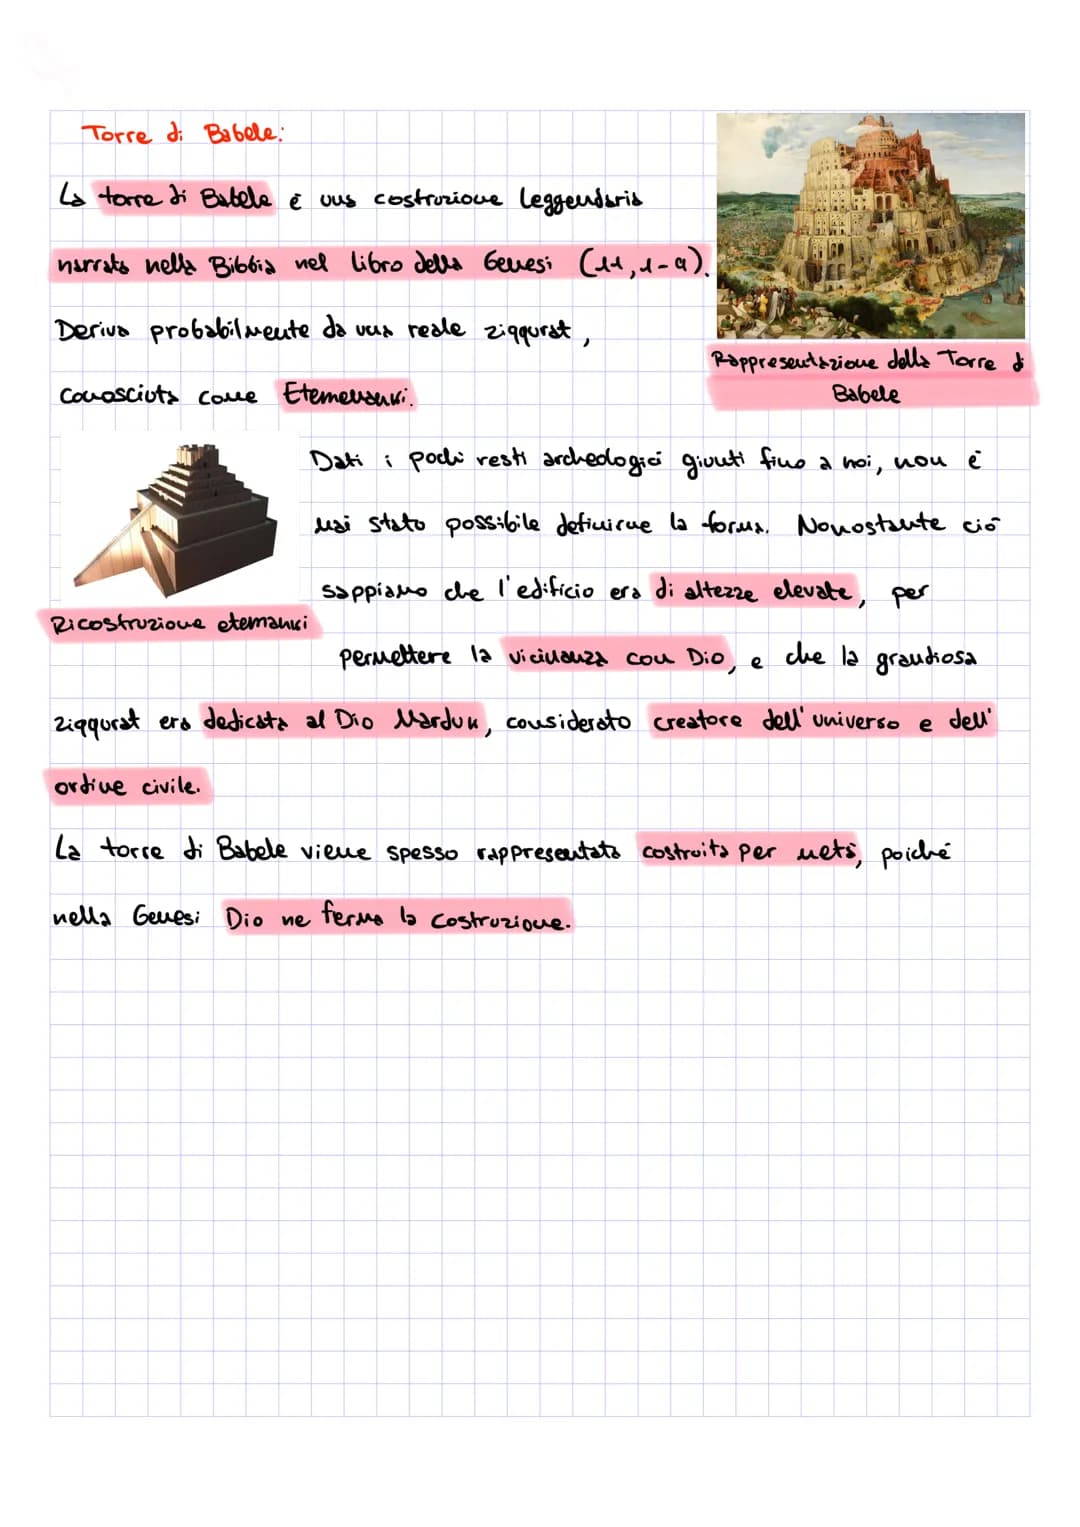 Torre di Babele:
La torre di Babele è una costruzione leggendaria
narrata nella Bibbia nel libro della Genesi (11,1-9).
Deriva probabilmente da una reale ziqqurat,
conosciuta come Etemenanki.
Rappresentazione della Torre di
Babele
Dati i pochi resti archeologici giunti fino a noi, non è
mai stato possibile definirne la forma. Nonostante ciò
sappiamo che l'edificio era di altezze elevate, per
Ricostruzione etemanki
permettere la vicinanza con Dio, e che la grandiosa
ziqqurat era dedicata al Dio Marduk, considerato creatore dell'universo e dell'
ordine civile.
La torre di Babele viene spesso rappresentata costruita per metà, poiché
nella Genesi Dio ne ferma la costruzione.